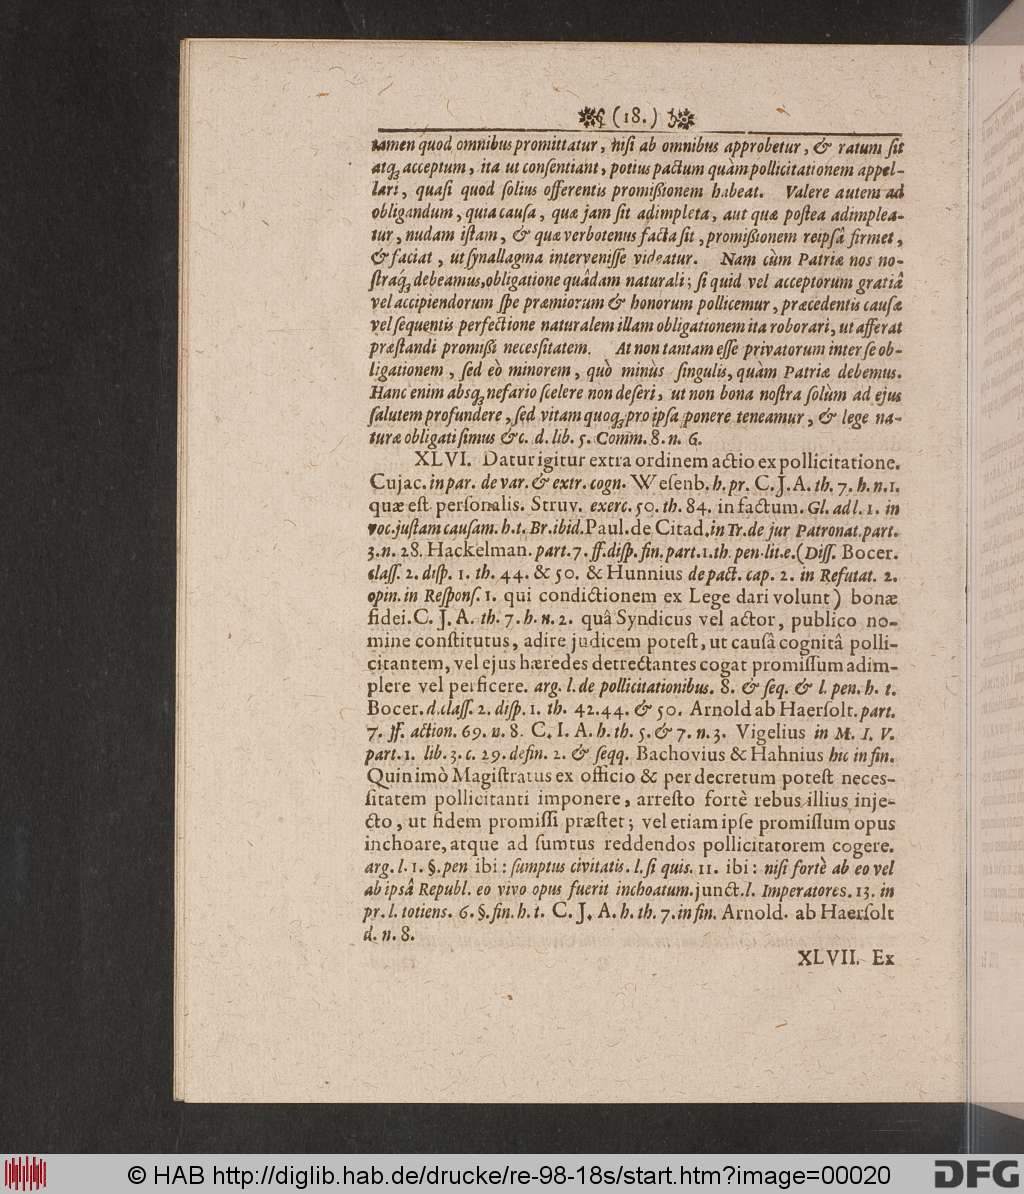 (18.)
tamen quod omnibus promittatur, nisi ab omnibus approbetur, & ratum sit
atq; acceptum, ita ut consentiant, potius pactum quàm pollicitationem appel-
lari, quasi quod solius offerentis promißionem habeat. Valere autem ad
obligandum, quia causa, quæ jam sit adimpleta, aut quæ postea adimplea-
tur, nudam istam, & quæ verbotenus facta sit, promißionem reipsâ firmet,
& faciat, ut synallagma intervenisse videatur. Nam cùm Patriæ nos no-
straq́; debeamus, obligatione quâdam naturali; si quid vel acceptorum gratiâ
vel accipiendorum spe præmiorum & honorum pollicemur, præcedentis causæ
vel sequentis perfectione naturalem illam obligationem ita roborari, ut afferat
præstandi promißi necessitatem. At non tantam esse privatorum inter se ob-
ligationem, sed eò minorem, quò minùs singulis, quàm Patriæ debemus.
Hanc enim absq; nefario scelere non deseri, ut non bona nostra solùm ad ejus
salutem profundere, sed vitam quoq; pro ipsa ponere teneamur, & lege na-
turæ obligati simus &c. d. lib. 5. Comm. 8. n. 6.
XLVI. Datur igitur extra ordinem actio ex pollicitatione.
Cujac. in par. de var. & extr. cogn. Wesenb. h. pr. C. J. A. th. 7. h. n. 1.
quæ est personalis. Struv. exerc. 50. th. 84. in factum. Gl. ad l. 1. in
voc. justam causam. h. t. Br. ibid. Paul. de Citad. in Tr. de jur Patronat. part.
3. n. 28. Hackelman. part. 7. ff. disp. fin. part. 1. th. pen. lit. e. (Diss. Bocer.
class. 2. disp. 1. th. 44. & 50. & Hunnius de pact. cap. 2. in Refutat. 2.
opin. in Respons. 1. qui condictionem ex Lege dari volunt) bonæ
fidei. C. J. A. th. 7. h. n. 2. quâ Syndicus vel actor, publico no-
mine constitutus, adire judicem potest, ut causâ cognitâ polli-
citantem, vel ejus hæredes detrectantes cogat promissum adim-
plere vel perficere. arg. l. de pollicitationibus. 8. & seq. & l. pen. h. t.
Bocer. d. class. 2. disp. 1. th. 42. 44. & 50. Arnold ab Haersolt. part.
7. ff. action. 69. n. 8. C. I. A. h. th. 5. & 7. n. 3. Vigelius in M. I. V.
part. 1. lib. 3. c. 29. defin. 2. & seqq. Bachovius & Hahnius hic in fin.
Quin imò Magistratus ex officio & per decretum potest neces-
sitatem pollicitanti imponere, arresto fortè rebus illius inje-
cto, ut fidem promissi præstet; vel etiam ipse promissum opus
inchoare, atque ad sumtus reddendos pollicitatorem cogere.
arg. l. 1. §. pen ibi: sumptus civitatis. l. si quis. 11. ibi: nisi fortè ab eo vel
ab ipsâ Republ. eo vivo opus fuerit inchoatum. junct. l. Imperatores. 13. in
pr. l. totiens. 6. §. fin. h. t. C. J. A. h. th. 7. in fin. Arnold. ab Haersolt
d. n. 8.
XLVII. Ex
© HAB http://diglib.hab.de/drucke/re-98-18s/start.htm?image=00020
DFG